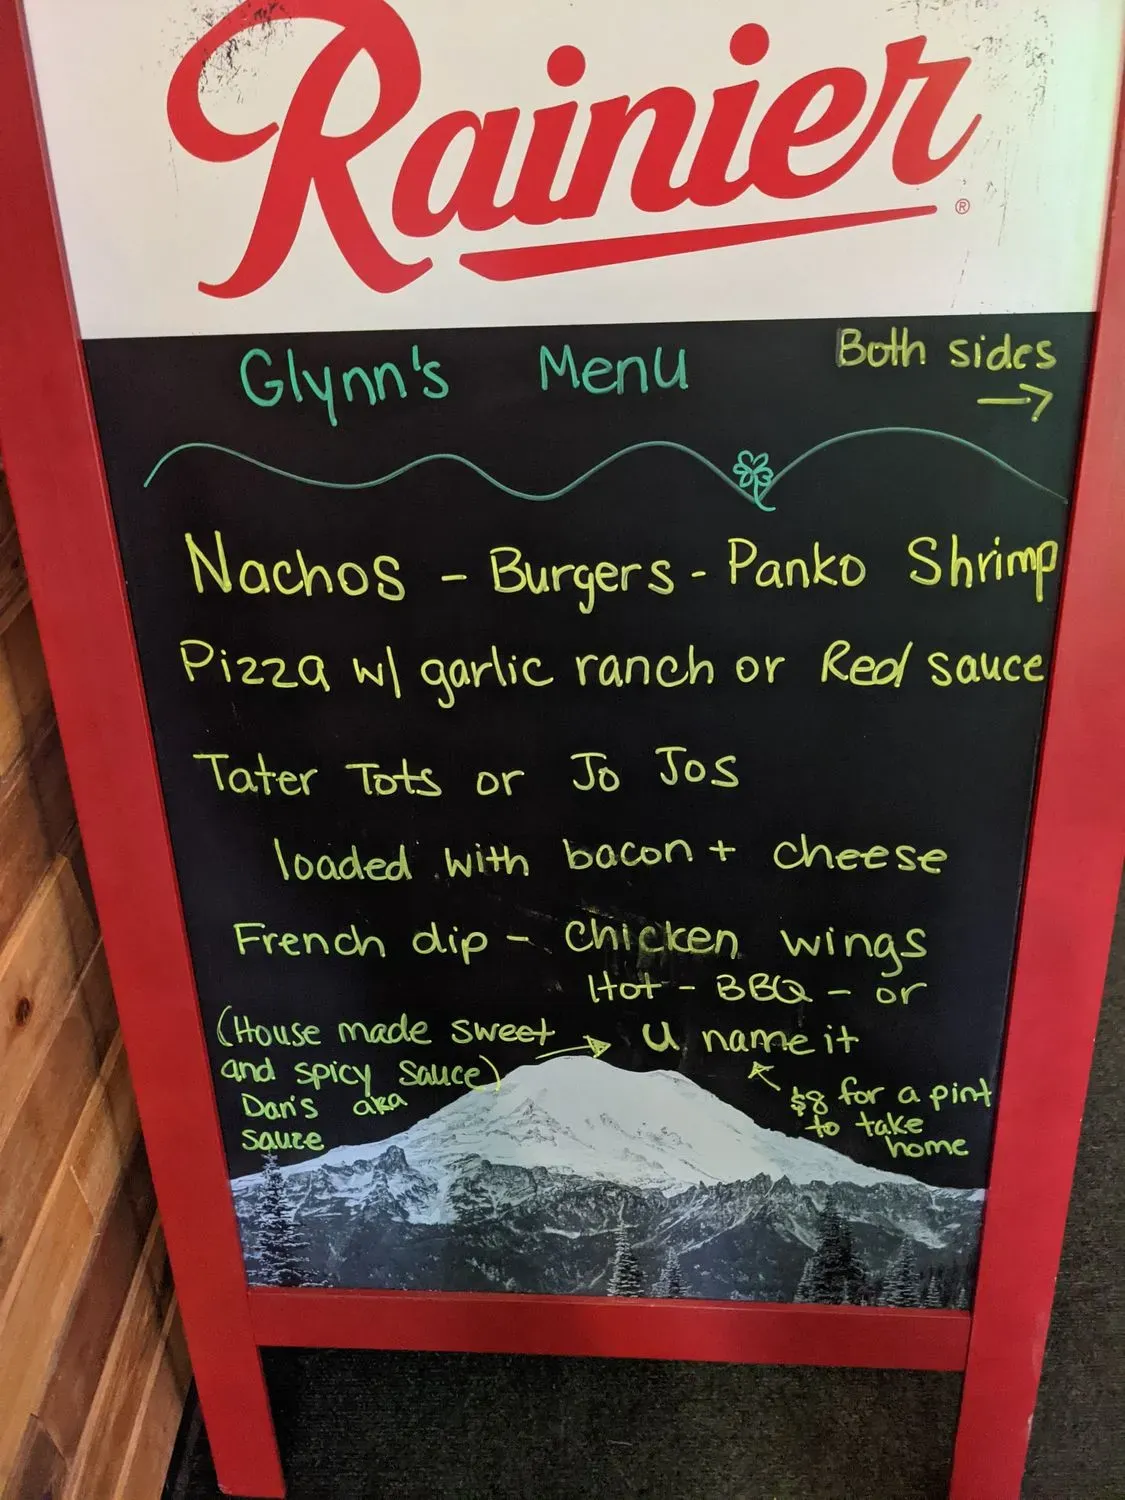 Rainier ®
Glynn's Menu
Both sides
→
Nachos - Burgers - Panko Shrimp
Pizza w/ garlic ranch or Red sauce
Tater Tots or Jo Jos
loaded with bacon + cheese
French dip - Chicken wings
Hot - BBQ - or
U name it
(House made sweet
and spicy sauce)
Dan's aka
sauce
$8 for a pint
to take
home